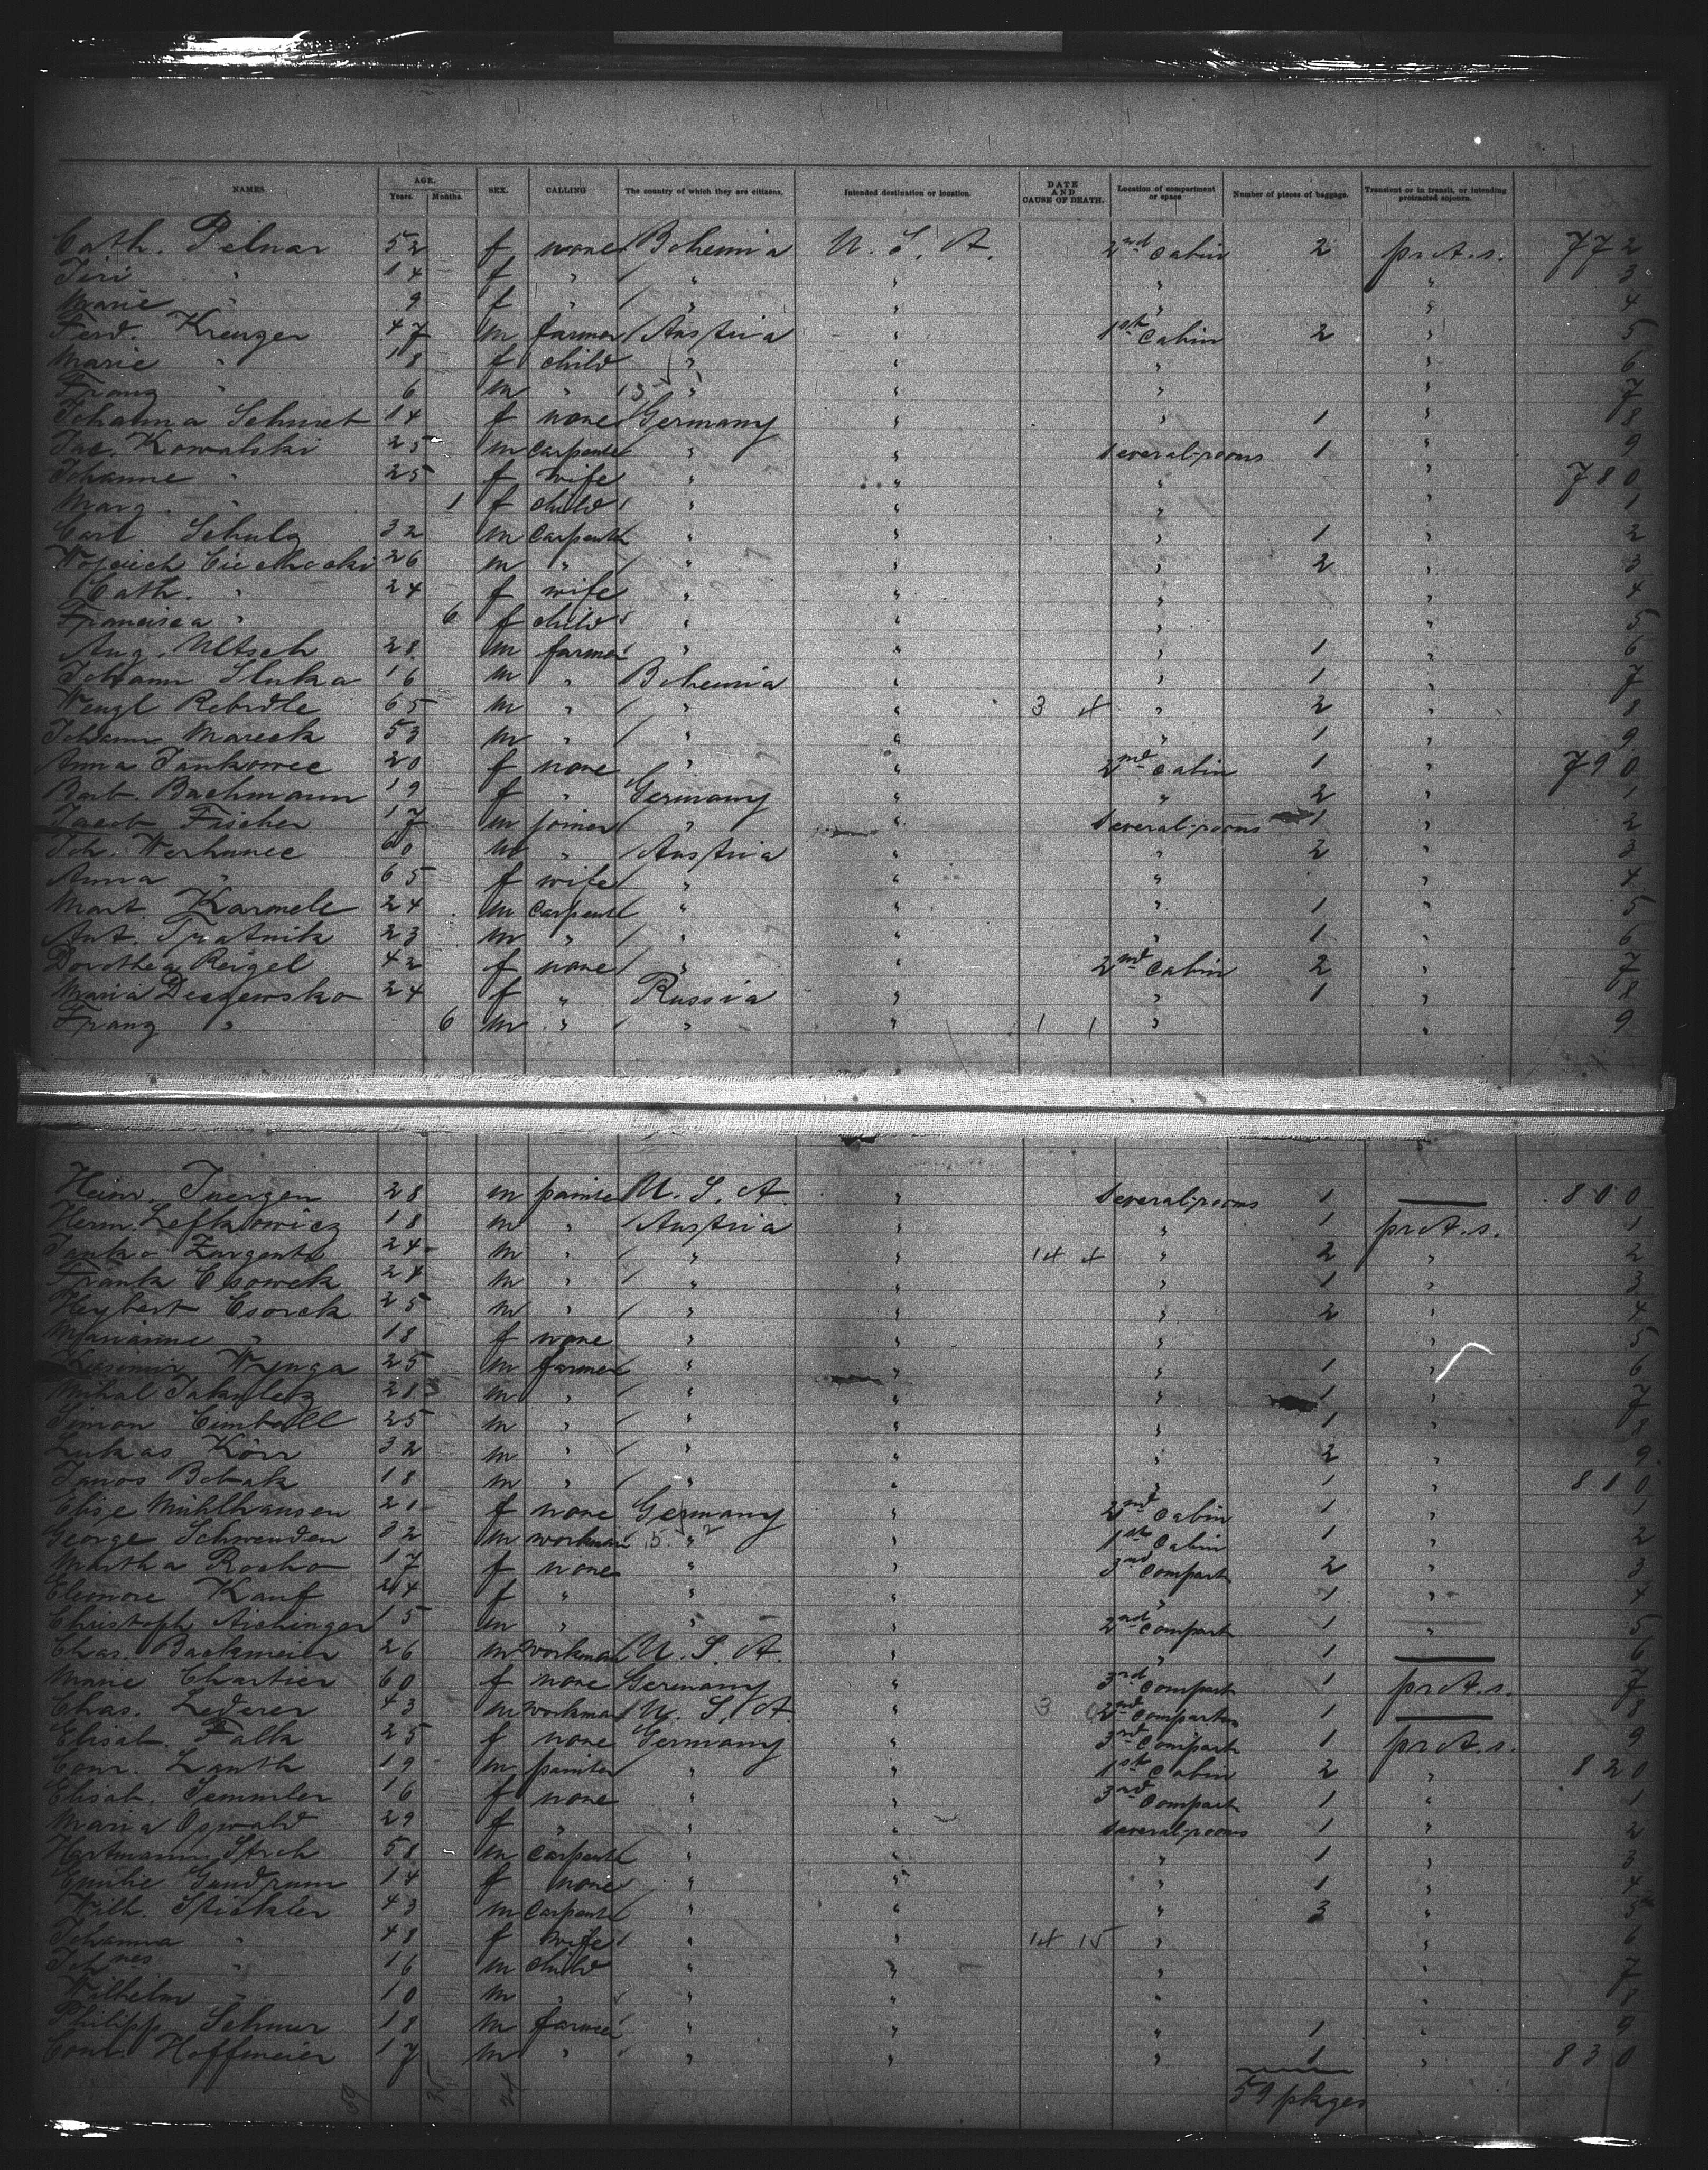 NAMES AGE. Years. Months. SEX. CALLING The country of which they are citizens. Intended destination or location. DATE AND CAUSE OF DEATH. Location of compartment or space Number of pieces of baggage. Transient or in transit, or intending protracted sojourn.
Cath. Pelnar 52 f none Bohemia U. S. A. 2nd Cabin 2 pr.A.s. 772
Jiri " 14 f " / " " " " 3
Marie " 9 f " / " " " " 4
Ferd. Kreuzer 47 m farmer / Austria " 1st Cabin 2 " 5
Marie " 18 f child " " " " 6
Franz 6 m " " " " " 7
Johanna 14 f none Germany " " 1 " 8
Jac. Kowalski 25 m Carpenter " " several-rooms 1 " 9
Johanne " 25 f wife " " " " 780
Marg. " 1 f child / " " " " 1
Carl Schulz 32 m Carpenter " " " 1 " 2
26 m " / " " " 2 " 3
Cath. " 24 f wife " " " " 4
Francisca " 6 f child " " " " 5
Aug. Ultsch 28 m farmer " " " 1 " 6
Johann Sluka 16 m " Bohemia " " 1 " 7
Wenzl Rebrdle 65 m " / " " 3 4 " 2 " 8
Johann Mareck 53 m " / " " " 1 " 9
Anna Jankowec 20 f none " " 2nd Cabin 1 " 790
Barb. Bachmann 19 f " Germany " " 2 " 1
Jacob Fischer 17 m joiner " " several-rooms 1 " 2
Joh. 60 m " / Austria " " 2 " 3
Anna " 65 f wife " " " " 4
Mart. Karmele 24 m Carpenter " " " 1 " 5
Ant. Tratnik 23 m " / " " " 1 " 6
Dorothea Reigel 42 f none / " " 2nd Cabin 2 " 7
Maria Deszewska 24 f " Russia " " 1 " 8
Franz " 6 m " / " " 1 1 " " 9
Heinr. Juergen 28 m painter U. S. A. " several-rooms 1 — 800
Herm. Lefkowicz 18 m " / Austria " " 1 pr.A.s. 1
Janko 24 m " / " " 14 4 " 2 " 2
Frank Csowek 24 m " / " " " 1 " 3
Heybert Csorek 25 m " / " " " 2 " 4
Marianne " 18 f none " " " " 5
Kasimir Wrynga 25 m farmer " " " 1 " 6
Mihal 28 m " / " " " 1 " 7
Simon Cimball 25 m " / " " " 1 " 8
Lukas Körr 32 m " / " " " 2 " 9
Janos Bobak 18 m " / " " " 1 " 810
Elise Mühlhausen 21 f none Germany " 2nd Cabin 1 " 1
George Schwenden 32 m workman " " 1st Cabin 1 " 2
Martha Rocho 17 f none " " 3rd Compart 2 " 3
Eleonore Kauf 24 f " " " " 1 " 4
Christoph Aichinger 15 m " " " 2nd Compart 1 " 5
Chas. Backmeier 26 m workman / U. S. A. " " 1 — 6
Marie Chartier 60 f none Germany " 3rd Compart 1 pr.A.s. 7
Chas. Lederer 43 m workman / U. S. A. " 3 2nd Compart 1 — 8
Elisab. Falk 25 f none Germany " 3rd Compart 1 pr.A.s. 9
Conr. Lauth 19 m painter " " 1st Cabin 2 " 820
Elisab. Semmler 16 f none " " 3rd Compart 1 " 1
Maria Oswald 29 f " " " several-rooms 1 " 2
Hartmann Stroh 58 m Carpenter " " " 1 " 3
Emilie Gundrum 14 f none " " " 1 " 4
Wilh. Stickler 43 m Carpenter " " " 3 " 5
Johanna " 48 f wife " " 14 15 " " 6
Johnes " 16 m child " " " " 7
Wilhelm " 10 m " " " " " 8
Philipp Schmer 18 m farmer " " " 1 " 9
Conr. Hoffmeier 17 m " " " " 1 " 830
59 35 24 59 pkges